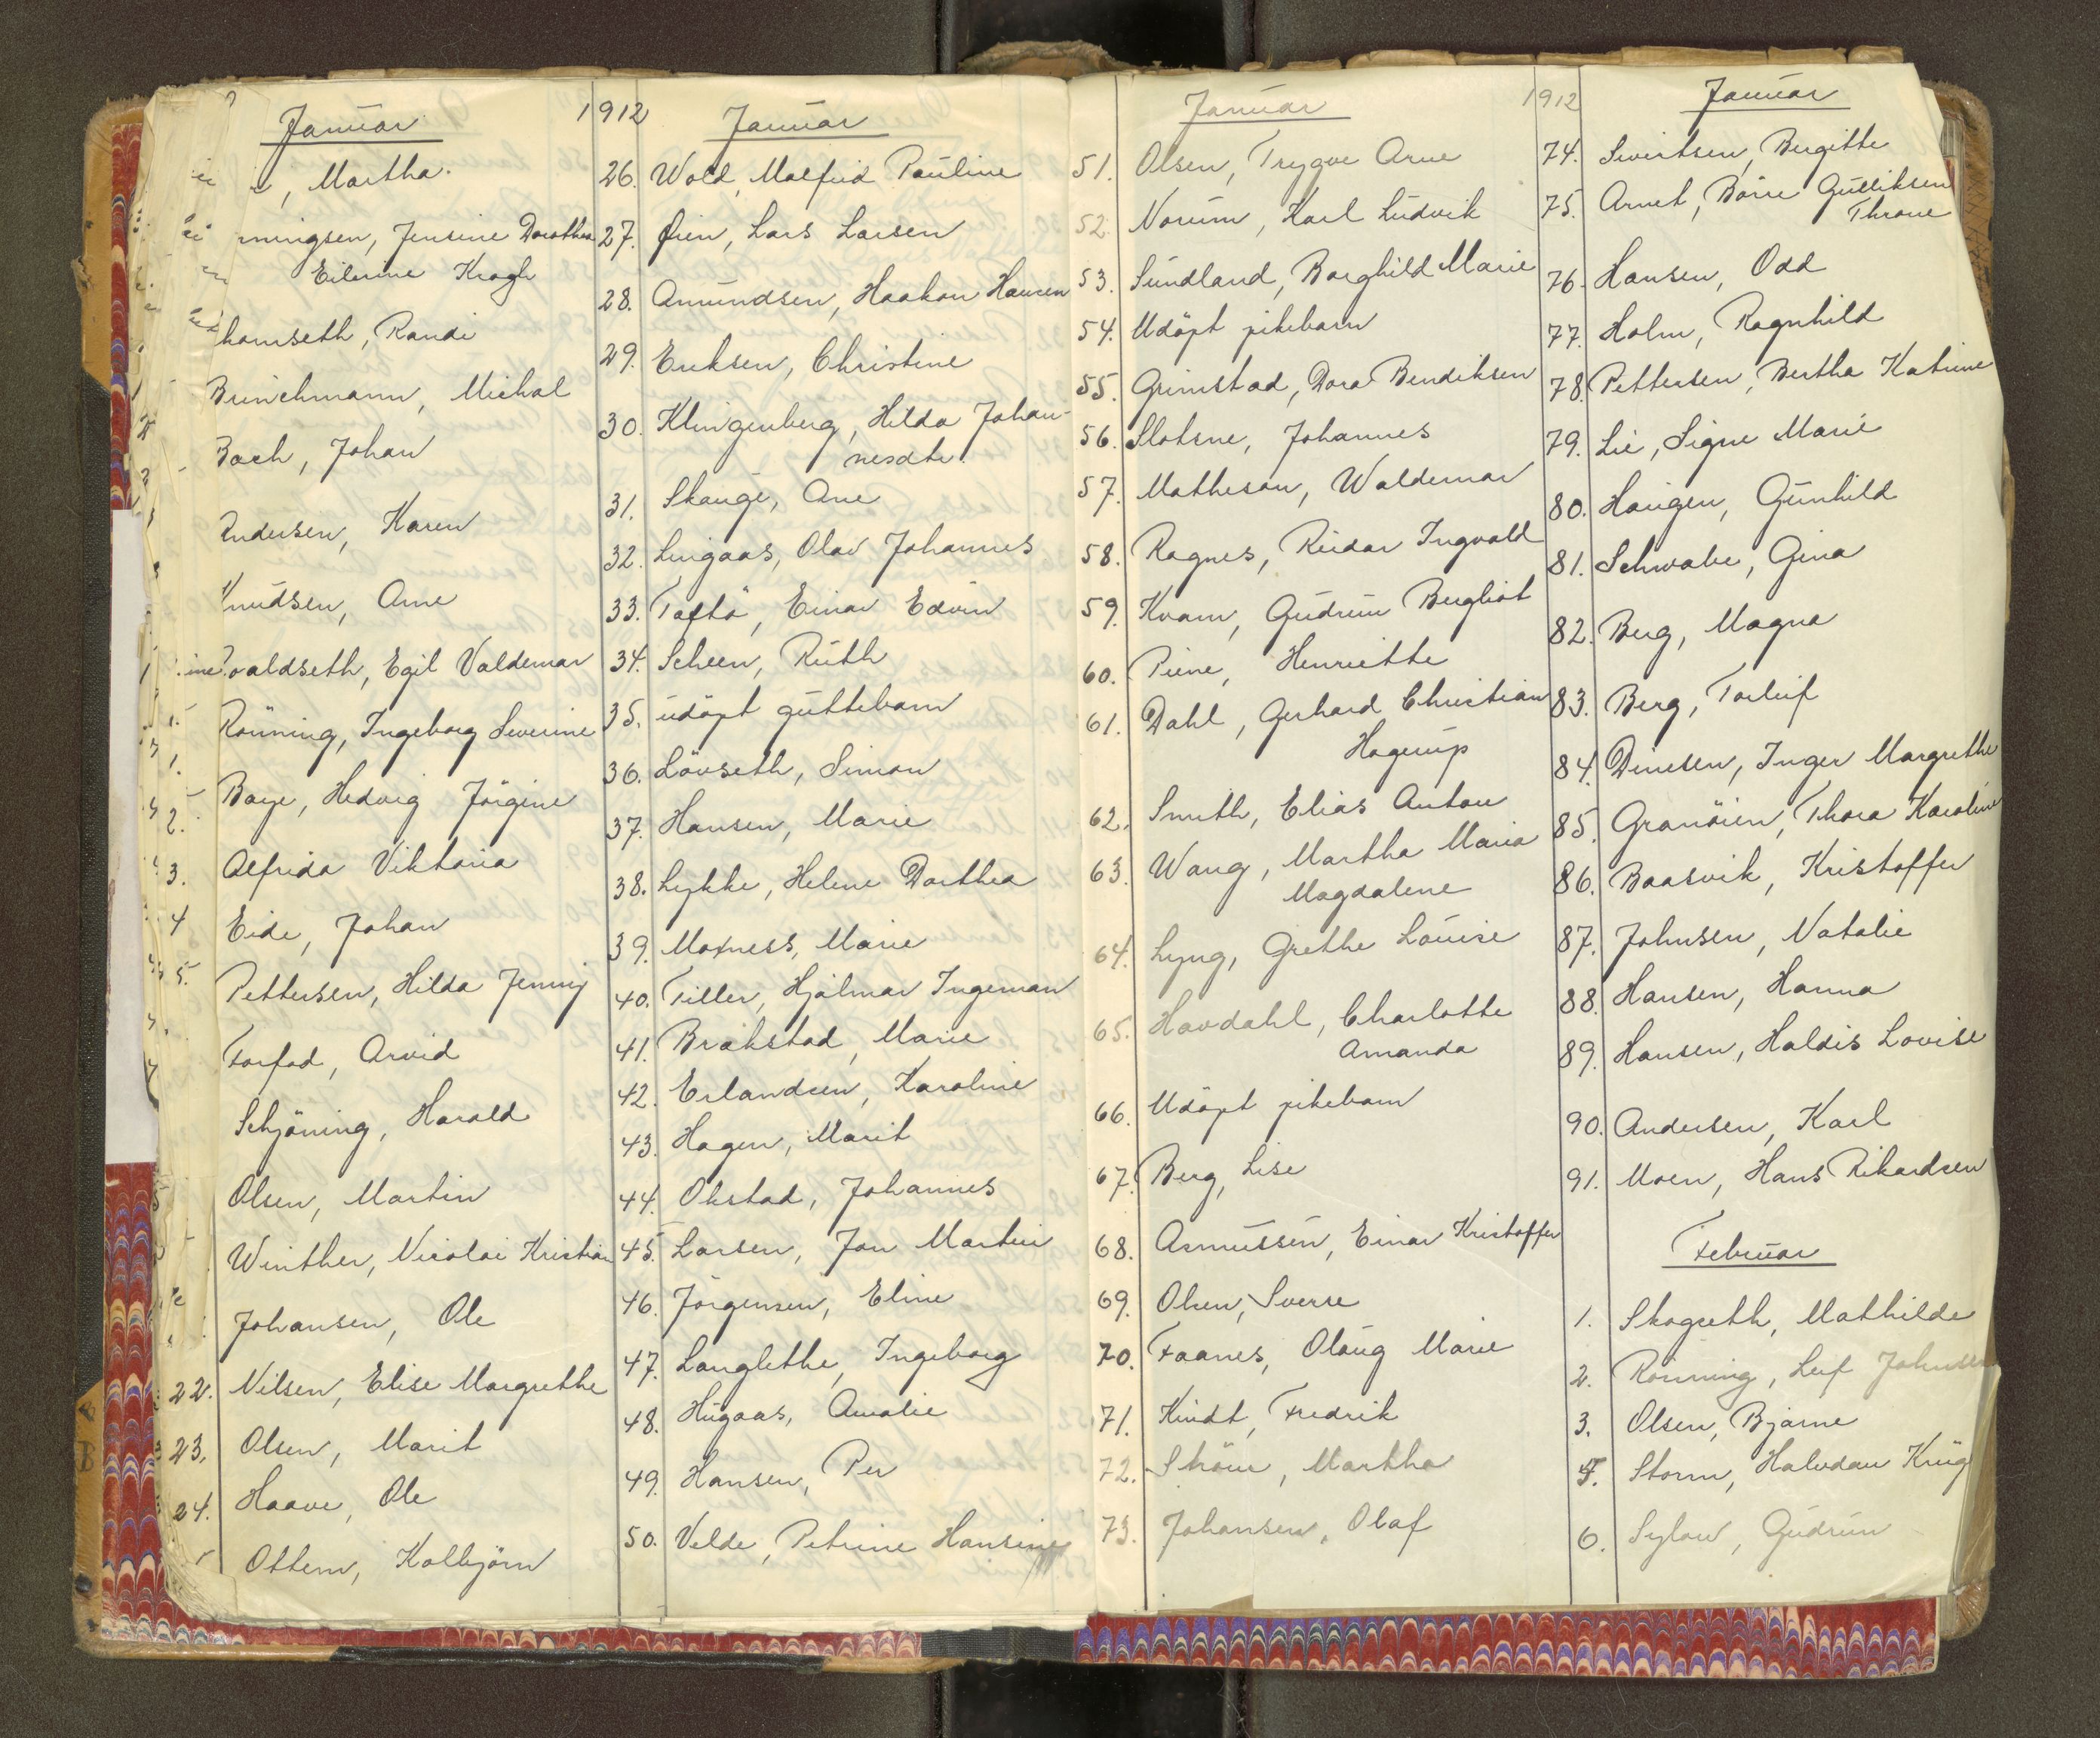 Januar
, Martha.
mingsen, Jensine Dorothea
Eilerine Krogh
hamseth, Randi
Brinchmann, Michal
Bach, Johan
Andersen, Karen
Knudsen, Arne
valdseth, Egil Valdemar
Rönning, Ingeborg Severine
1.
Baye, Hedvig Jörgine
2.
3. Alfrida Viktoria
4 Eide, Johan
5. Pettersen, Hilda Jenny
Forfod, Arvid
Schjöning, Harald
Olsen, Martin
Winther, Nicolai Kristian
Johansen, Ole
22. Nilsen, Elise Margrethe
23. Olsen, Marit
24. Haave, Ole
Ottem, Kolbjörn
1912 Januar
26. Wold, Malfrid Pauline
27. Øien, Lars Larsen
28. Amundsen, Haakon Hansen
29. Eriksen, Christine
30. Klingenberg, Hilda Johan-
nesdtr.
31. Skauge, Ane
32. Lingaas, Olav Johannes
33. Taftö, Einar Edvin
34. Scheen, Ruth
35. udöpt guttebarn
36. Lövseth, Simon
37. Hansen, Marie
38. Lykke, Helene Dorthea
39. Moxness, Marie
40. Tiller, Hjalmar Ingeman
41. Brækstad, Marie
42. Erlandsen, Karoline
43. Hagen, Marit
44. Okstad, Johannes
45. Larsen, Jon Martin
46. Jörgensen, Eline
47. Langlethe, Ingeborg
48. Hugaas, Amalie
49. Hansen, Per
50. Velde, Petrine Hansine
Januar 1912
51. Olsen, Trygve Arne
52. Norum, Karl Ludvik
53. Sundland, Borghild Marie
54. Udöpt pikebarn
55. Grimstad, Dora Bendiksen
56. Slotsne, Johannes
57. Matheson, Waldemar
58. Ragnes, Reidar Ingvald
59. Kvam, Gudrun Bergliot
60. Piene, Henriette
61. Dahl, Gerhard Christian
Hagerup
62. Smith, Elias Anton
63. Wang, Martha Maria
Magdalene
64. Lyng, Grethe Louise
65. Havdahl, Charlotte
Amanda
66. Udöpt pikebarn
67. Berg, Lise
68. Asmussen, Einar Kristoffer
69. Olsen, Sverre
70. Faanes, Olaug Marie
71. Kindt, Fredrik
72. Ström, Martha
73. Johansen, Olaf
Januar
74. Sivertsen, Bergitte
75. Arnet, Börre Gulliksen
Throne
76. Hansen, Odd
77. Holm, Ragnhild
78. Pettersen, Bertha Katrine
79. Lie, Signe Marie
80. Haugen, Gunhild
81. Schwabe, Gina
82. Berg, Magna
83. Berg, Torleif
84. Dinesen, Inger Margrethe
85. Granöien, Thora Karoline
86. Baasvik, Kristoffer
87. Johnsen, Natalie
88. Hansen, Hanna
89. Hansen, Haldis Lovise
90. Andersen, Karl
91. Moen, Hans Rikardsen
Februar
1. Skogseth, Mathilde
2. Rönning, Leif Johnsen
3. Olsen, Bjarne
4. Storm, Halvdan Krüg
6. Sylow, Gudrun